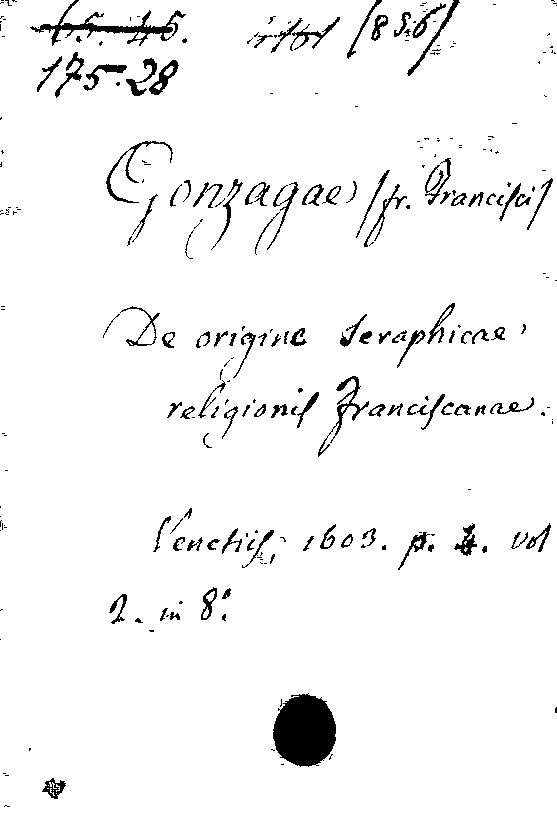 65. 46. (856)
175.28
Gonzagae (fr. Francisci)
De origine Seraphicae
religionis Franciscanae.
Venetiis, 1603. p. 4. vol
2. in 8°.